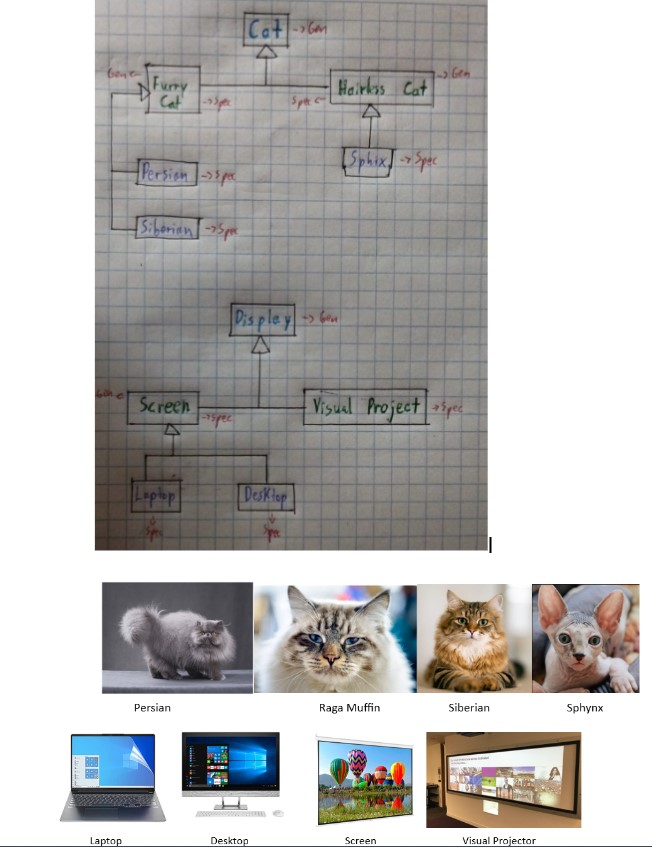 Cat → Gen
Gen ←
Furry
Cat
→ Spec
Spec ←
Hairless Cat
→ Gen
Sphix → Spec
Persian → Spec
Siberian → Spec
Display → Gen
Gen ←
Screen
→ Spec
Visual Project → Spec
Laptop
Desktop
Spec
Spec
Persian
Raga Muffin
Siberian
Sphynx
Laptop
Desktop
Screen
Visual Projector